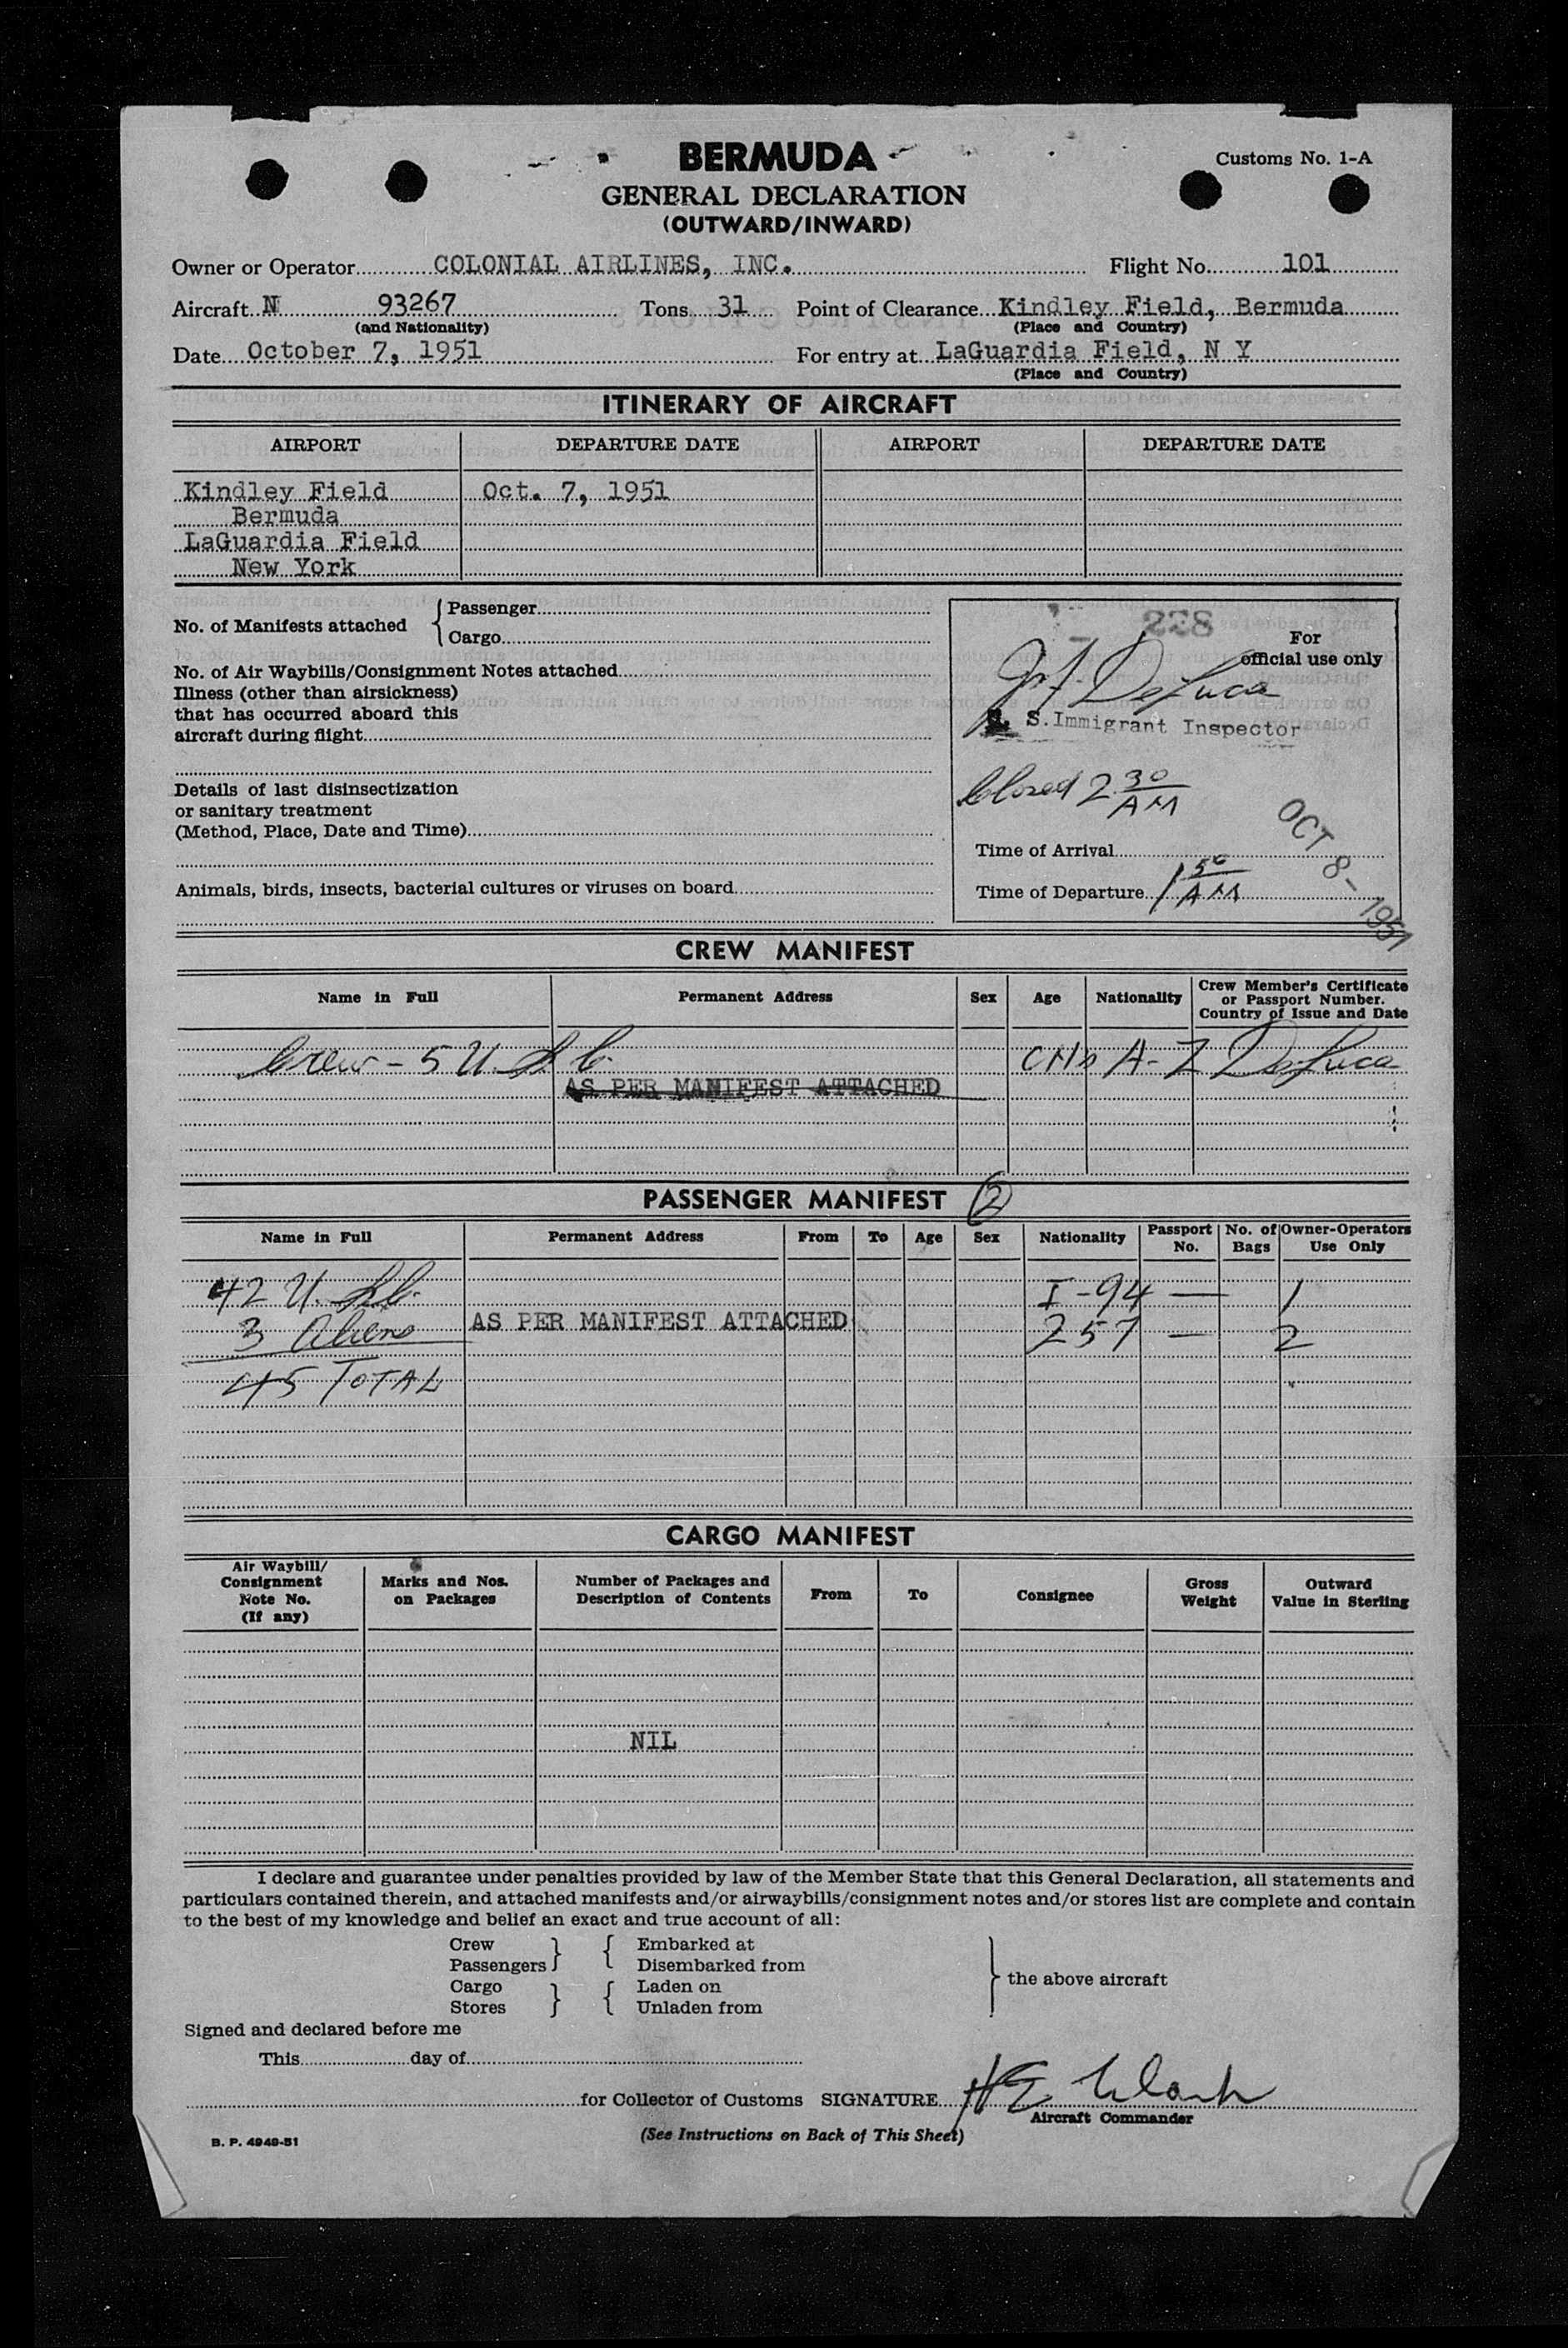 BERMUDA
Customs No. 1-A
GENERAL DECLARATION
(OUTWARD/INWARD)
Owner or Operator COLONIAL AIRLINES, INC. Flight No. 101
Aircraft N 93267 Tons 31 Point of Clearance Kindley Field, Bermuda
(and Nationality) (Place and Country)
Date October 7, 1951 For entry at LaGuardia Field, N Y
(Place and Country)
ITINERARY OF AIRCRAFT
AIRPORT DEPARTURE DATE AIRPORT DEPARTURE DATE
Kindley Field Oct. 7, 1951
Bermuda
LaGuardia Field
New York
No. of Manifests attached { Passenger
Cargo
No. of Air Waybills/Consignment Notes attached
Illness (other than airsickness)
that has occurred aboard this
aircraft during flight
Details of last disinsectization
or sanitary treatment
(Method, Place, Date and Time)
Animals, birds, insects, bacterial cultures or viruses on board
228
For
official use only
DeLuca
S. Immigrant Inspector
Closed 2 30
AM
OCT 8- 1951
Time of Arrival
Time of Departure 1 50 AM
CREW MANIFEST
Name in Full Permanent Address Sex Age Nationality Crew Member's Certificate
or Passport Number.
Country of Issue and Date
Crew - 5 U.S.C. A-2 DeLuca
AS PER MANIFEST ATTACHED
PASSENGER MANIFEST 2
Name in Full Permanent Address From To Age Sex Nationality Passport No. No. of Bags Owner-Operators Use Only
42 U.S.C. I-94 — 1
3 Aliens AS PER MANIFEST ATTACHED 257 — 2
45 TOTAL
CARGO MANIFEST
Air Waybill/
Consignment
Note No.
(If any)
Marks and Nos.
on Packages
Number of Packages and
Description of Contents
From To Consignee
Gross
Weight
Outward
Value in Sterling
NIL
I declare and guarantee under penalties provided by law of the Member State that this General Declaration, all statements and
particulars contained therein, and attached manifests and/or airwaybills/consignment notes and/or stores list are complete and contain
to the best of my knowledge and belief an exact and true account of all:
Crew } { Embarked at
Passengers } { Disembarked from
Cargo } { Laden on } the above aircraft
Stores } { Unladen from
Signed and declared before me
This day of
for Collector of Customs SIGNATURE H E Clark
Aircraft Commander
(See Instructions on Back of This Sheet)
B. P. 4949-51